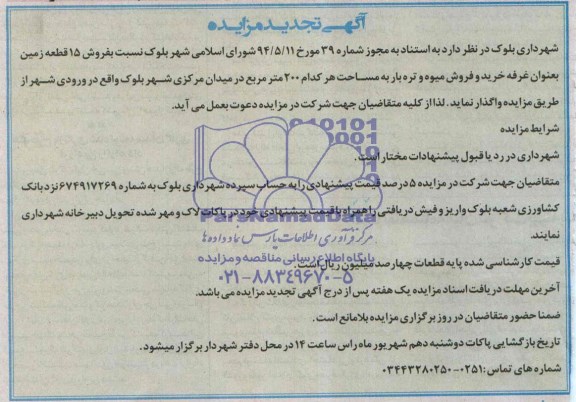 آگهی تجدید مزایده
شهرداری بلوک در نظر دارد به استناد به مجوز شماره ۳۹ مورخ ۹۴/۵/۱۱ شورای اسلامی شهر بلوک نسبت بفروش ۱۵ قطعه زمین
بعنوان غرفه خرید و فروش میوه و تره بار به مساحت هر کدام ۲۰۰ متر مربع در میدان مرکزی شهر بلوک واقع در ورودی شهر از
طریق مزایده واگذار نماید. لذا از کلیه متقاضیان جهت شرکت در مزایده دعوت بعمل می آید.
شرایط مزایده
شهرداری در رد یا قبول پیشنهادات مختار است.
متقاضیان جهت شرکت در مزایده ۵ درصد قیمت پیشنهادی را به حساب سپرده شهرداری بلوک به شماره ۶۷۴۹۱۷۲۶۹ نزد بانک
کشاورزی شعبه بلوک واریز و فیش دریافتی را همراه با قیمت پیشنهادی خود در پاکات لاک و مهر شده تحویل دبیرخانه شهرداری
نمایند.
قیمت کارشناسی شده پایه قطعات چهارصد میلیون ریال است.
آخرین مهلت دریافت اسناد مزایده یک هفته پس از درج آگهی تجدید مزایده می باشد.
ضمنا حضور متقاضیان در روز برگزاری مزایده بلامانع است.
تاریخ بازگشایی پاکات دوشنبه دهم شهریور ماه راس ساعت ۱۴ در محل دفتر شهردار برگزار میشود.
شماره های تماس: ۰۲۵۱-۰۳۴۴۳۲۸۰۲۵۰
ParsNamadData
مرکز فرآوری اطلاعات پارس نماد داده ها
پایگاه اطلاع رسانی مناقصه و مزایده
۰۲۱-۸۸۳۴۹۶۷۰-۵